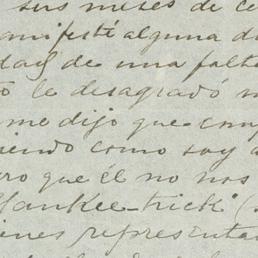 sus meses de ce
manifesté alguna di
dad de una falta
to le desagradó m
me dijo que comp
iendo como soy a
ero que él no nos
Yankee-trick" (
ienes representa